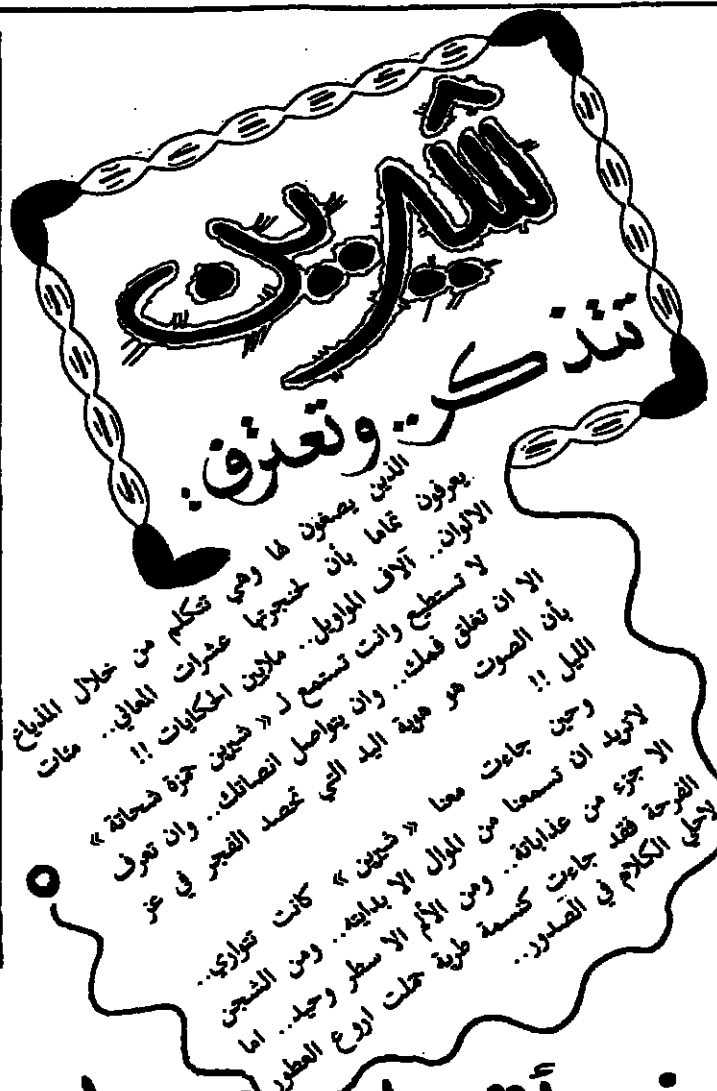 شيرين
تتذكر.. وتعزف:
الذين يصغون لها وهي تتكلم من خلال المذياع
يعرفون تماما بأن لحنجرتها عشرات المعاني.. مئات
الالوان.. آلاف المواويل.. ملايين الحكايات !!
لا تستطيع وانت تستمع لـ « شيرين حمزة شحاتة »
الا ان تغلق فمك.. وان يتواصل انصاتك.. وان تعرف
بأن الصوت هو هوية اليد التي تحصد الفجر في عز
الليل !!
وحين جاءت معنا « شيرين » كانت تتوارى..
لاتريد ان تسمعنا من الموال الا بدايته.. ومن الشجن
الا جزء من عذاباته.. ومن الألم الا سطر وحيد.. اما
الفرحة فقد جاءت كنسمة طرية حملت اروع العطور
لاحلى الكلام في الصدور..